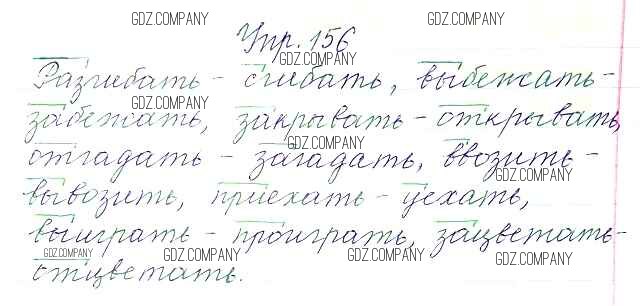 GDZ.COMPANY GDZ.COMPANY
Упр. 156
GDZ.COMPANY
Разгибать - сгибать, выбежать-
GDZ.COMPANY GDZ.COMPANY
забежать, закрывать - открывать,
GDZ.COMPANY
отгадать - загадать, ввозить -
GDZ.COMPANY GDZ.COMPANY
вывозить, приехать - уехать,
GDZ.COMPANY
выиграть - проиграть, зацветать-
GDZ.COMPANY GDZ.COMPANY GDZ.COMPANY GDZ.COMPANY
отцветать.